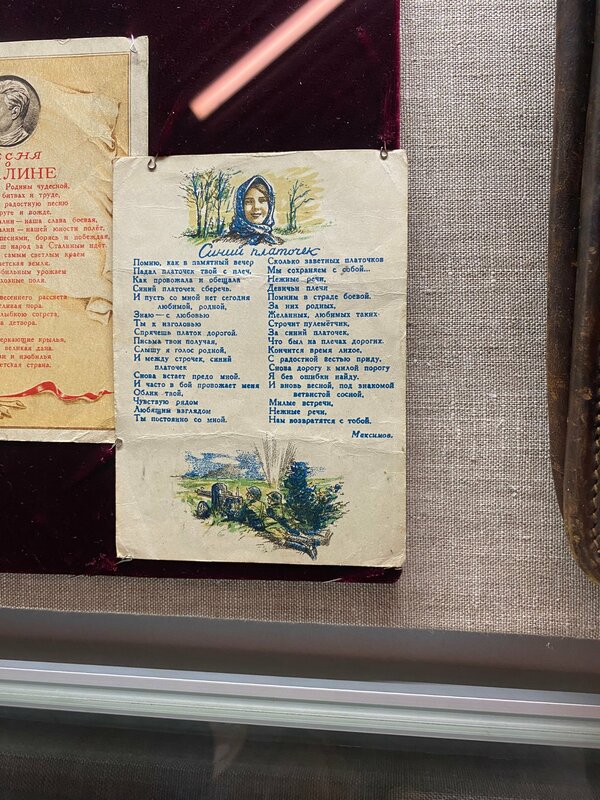 ЕСНЯ
О
ЛИНЕ
Родины чудесной,
битвах и труде,
радостную песню
руге и вожде.
алин — наша слава боевая,
алин — нашей юности полёт,
песнями, борясь и побеждая,
ш народ за Сталиным идёт.
самым светлым краем
ветская земля.
обильным урожаем
поля.
весеннего рассвета
пора.
лыбкою согрета,
а детвора.
еркающие крылья,
великая дана.
и изобилья
етская страна.
Синий платочек
Помню, как в памятный вечер
Падал платочек твой с плеч,
Как провожала и обещала
Синий платочек сберечь.
И пусть со мной нет сегодня
любимой, родной,
Знаю — с любовью
Ты к изголовью
Спрячешь платок дорогой.
Письма твои получая,
Слышу я голос родной,
И между строчек, синий
платочек
Снова встает предо мной.
И часто в бой провожает меня
Облик твой,
Чувствую рядом
Любящим взглядом
Ты постоянно со мной.
Сколько заветных платочков
Мы сохраняем с собой...
Нежные речи,
Девичьи плечи
Помним в страде боевой.
За них родных,
Желанных, любимых таких
Строчит пулемётчик,
За синий платочек,
Что был на плечах дорогих.
Кончится время лихое,
С радостной вестью приду.
Снова дорогу к милой порогу
Я без ошибки найду.
И вновь весной, под знакомой
ветвистой сосной,
Милые встречи,
Нежные речи,
Нам возвратятся с тобой.
Максимов.